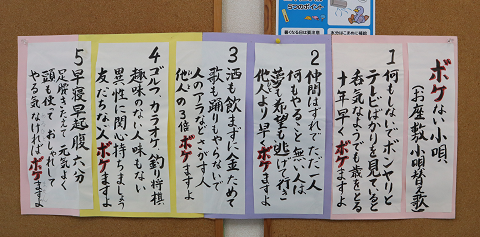 ボケない小唄
(お座敷小唄替え歌)
1 何もしないでボンヤリと
テレビばかりを見ていると
呑気なようでも歳をとる
十年早くボケますよ
2 仲間はずれでただ一人
何もやること無い人は
夢も希望も逃げて行く
他人より早くボケますよ
3 酒も飲まずに金ためて
歌も踊りもやらないで
人のアラなどさがす人
他人の3倍ボケますよ
4 ゴルフ、カラオケ、釣り将棋
趣味のない人味もない
異性に関心持ちましょう
友だちない人ボケますよ
5 早寝早起腹六分
足腰きたえて元気よく
頭も使っておしゃれして
やる気なければボケますよ
5つのポイント